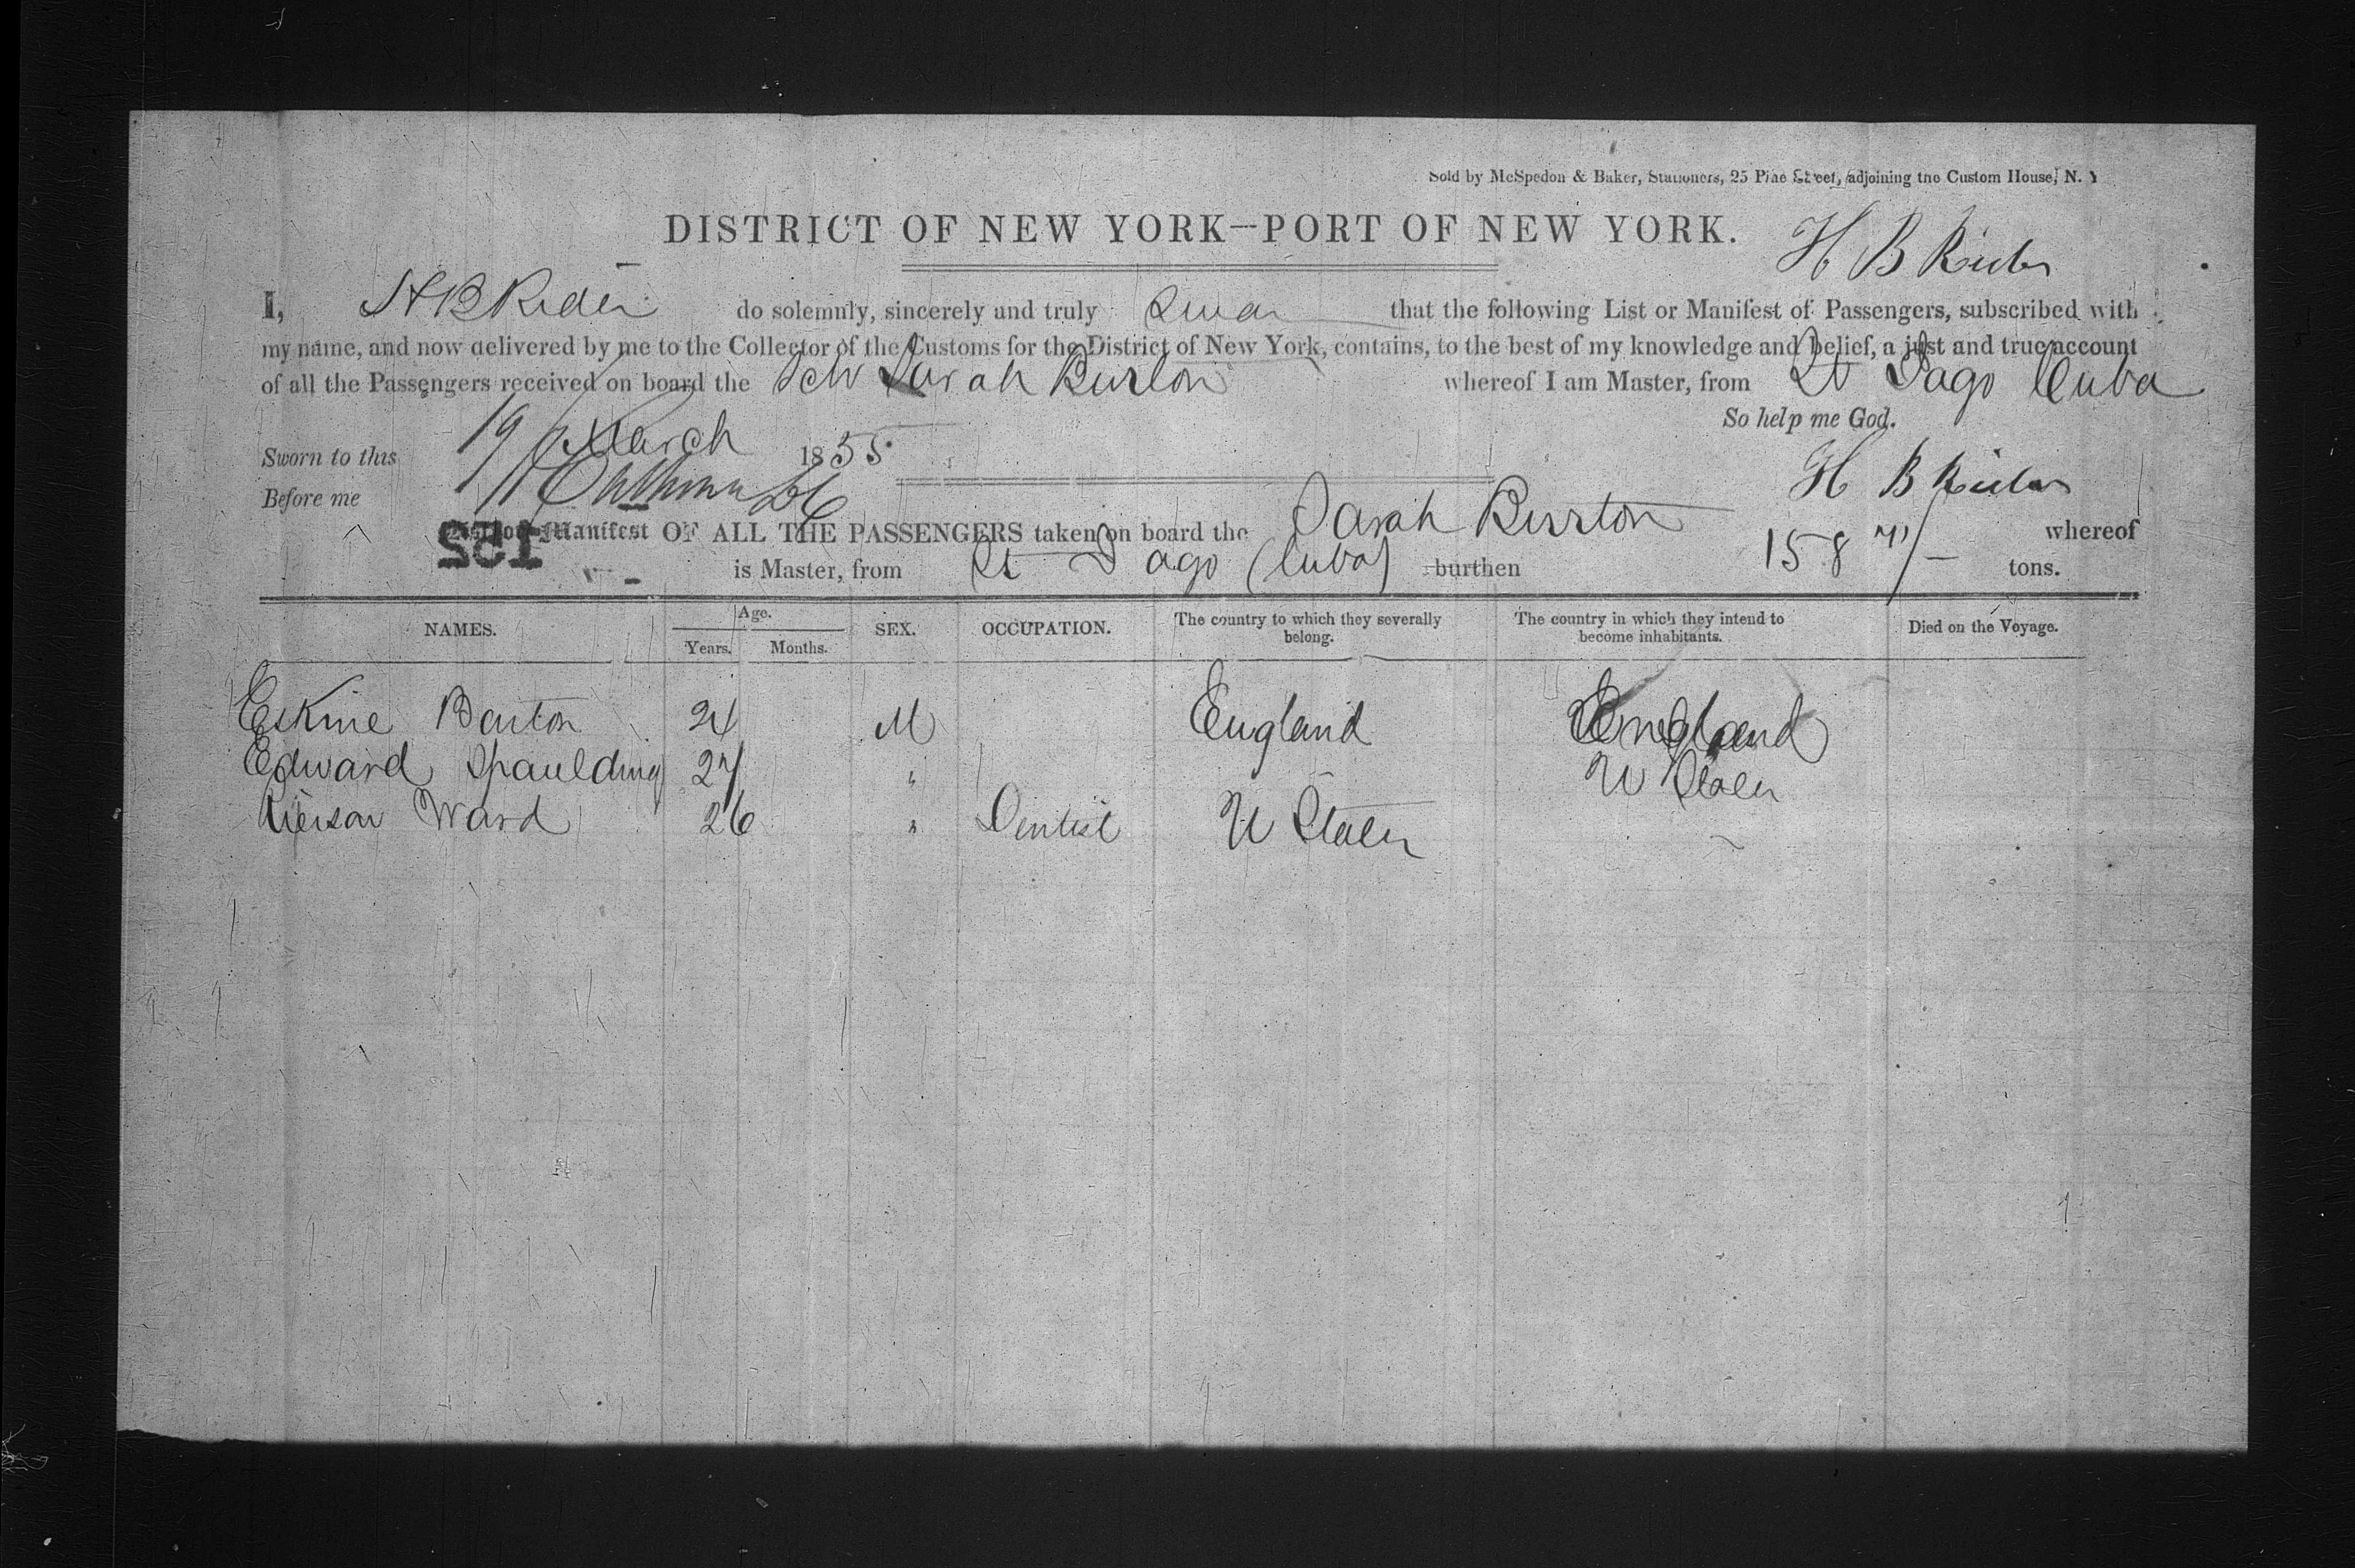 Sold by McSpedon & Baker, Stationers, 25 Pine Street, adjoining the Custom House, N. Y
DISTRICT OF NEW YORK—PORT OF NEW YORK.
H B Rider
I, H B Rider do solemnly, sincerely and truly swear that the following List or Manifest of Passengers, subscribed with
my name, and now delivered by me to the Collector of the Customs for the District of New York, contains, to the best of my knowledge and belief, a just and true account
of all the Passengers received on board the Schr Sarah Burton whereof I am Master, from St Iago Cuba
So help me God.
Sworn to this 19 March 1855
Before me
H B Rider
152
List or Manifest OF ALL THE PASSENGERS taken on board the Sarah Burton whereof
is Master, from St Iago (Cuba) burthen 158 tons.
NAMES. Age. Years. Months. SEX. OCCUPATION. The country to which they severally belong. The country in which they intend to become inhabitants. Died on the Voyage.
Eskine Barton 24 M England England
Edward Spaulding 27 " U States
Ward 26 " Dentist U States